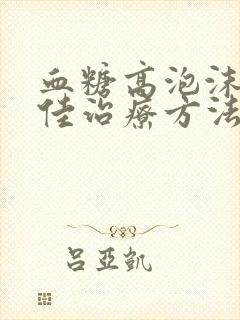 血糖高泡沫
佳治疗方法
吕亚凯